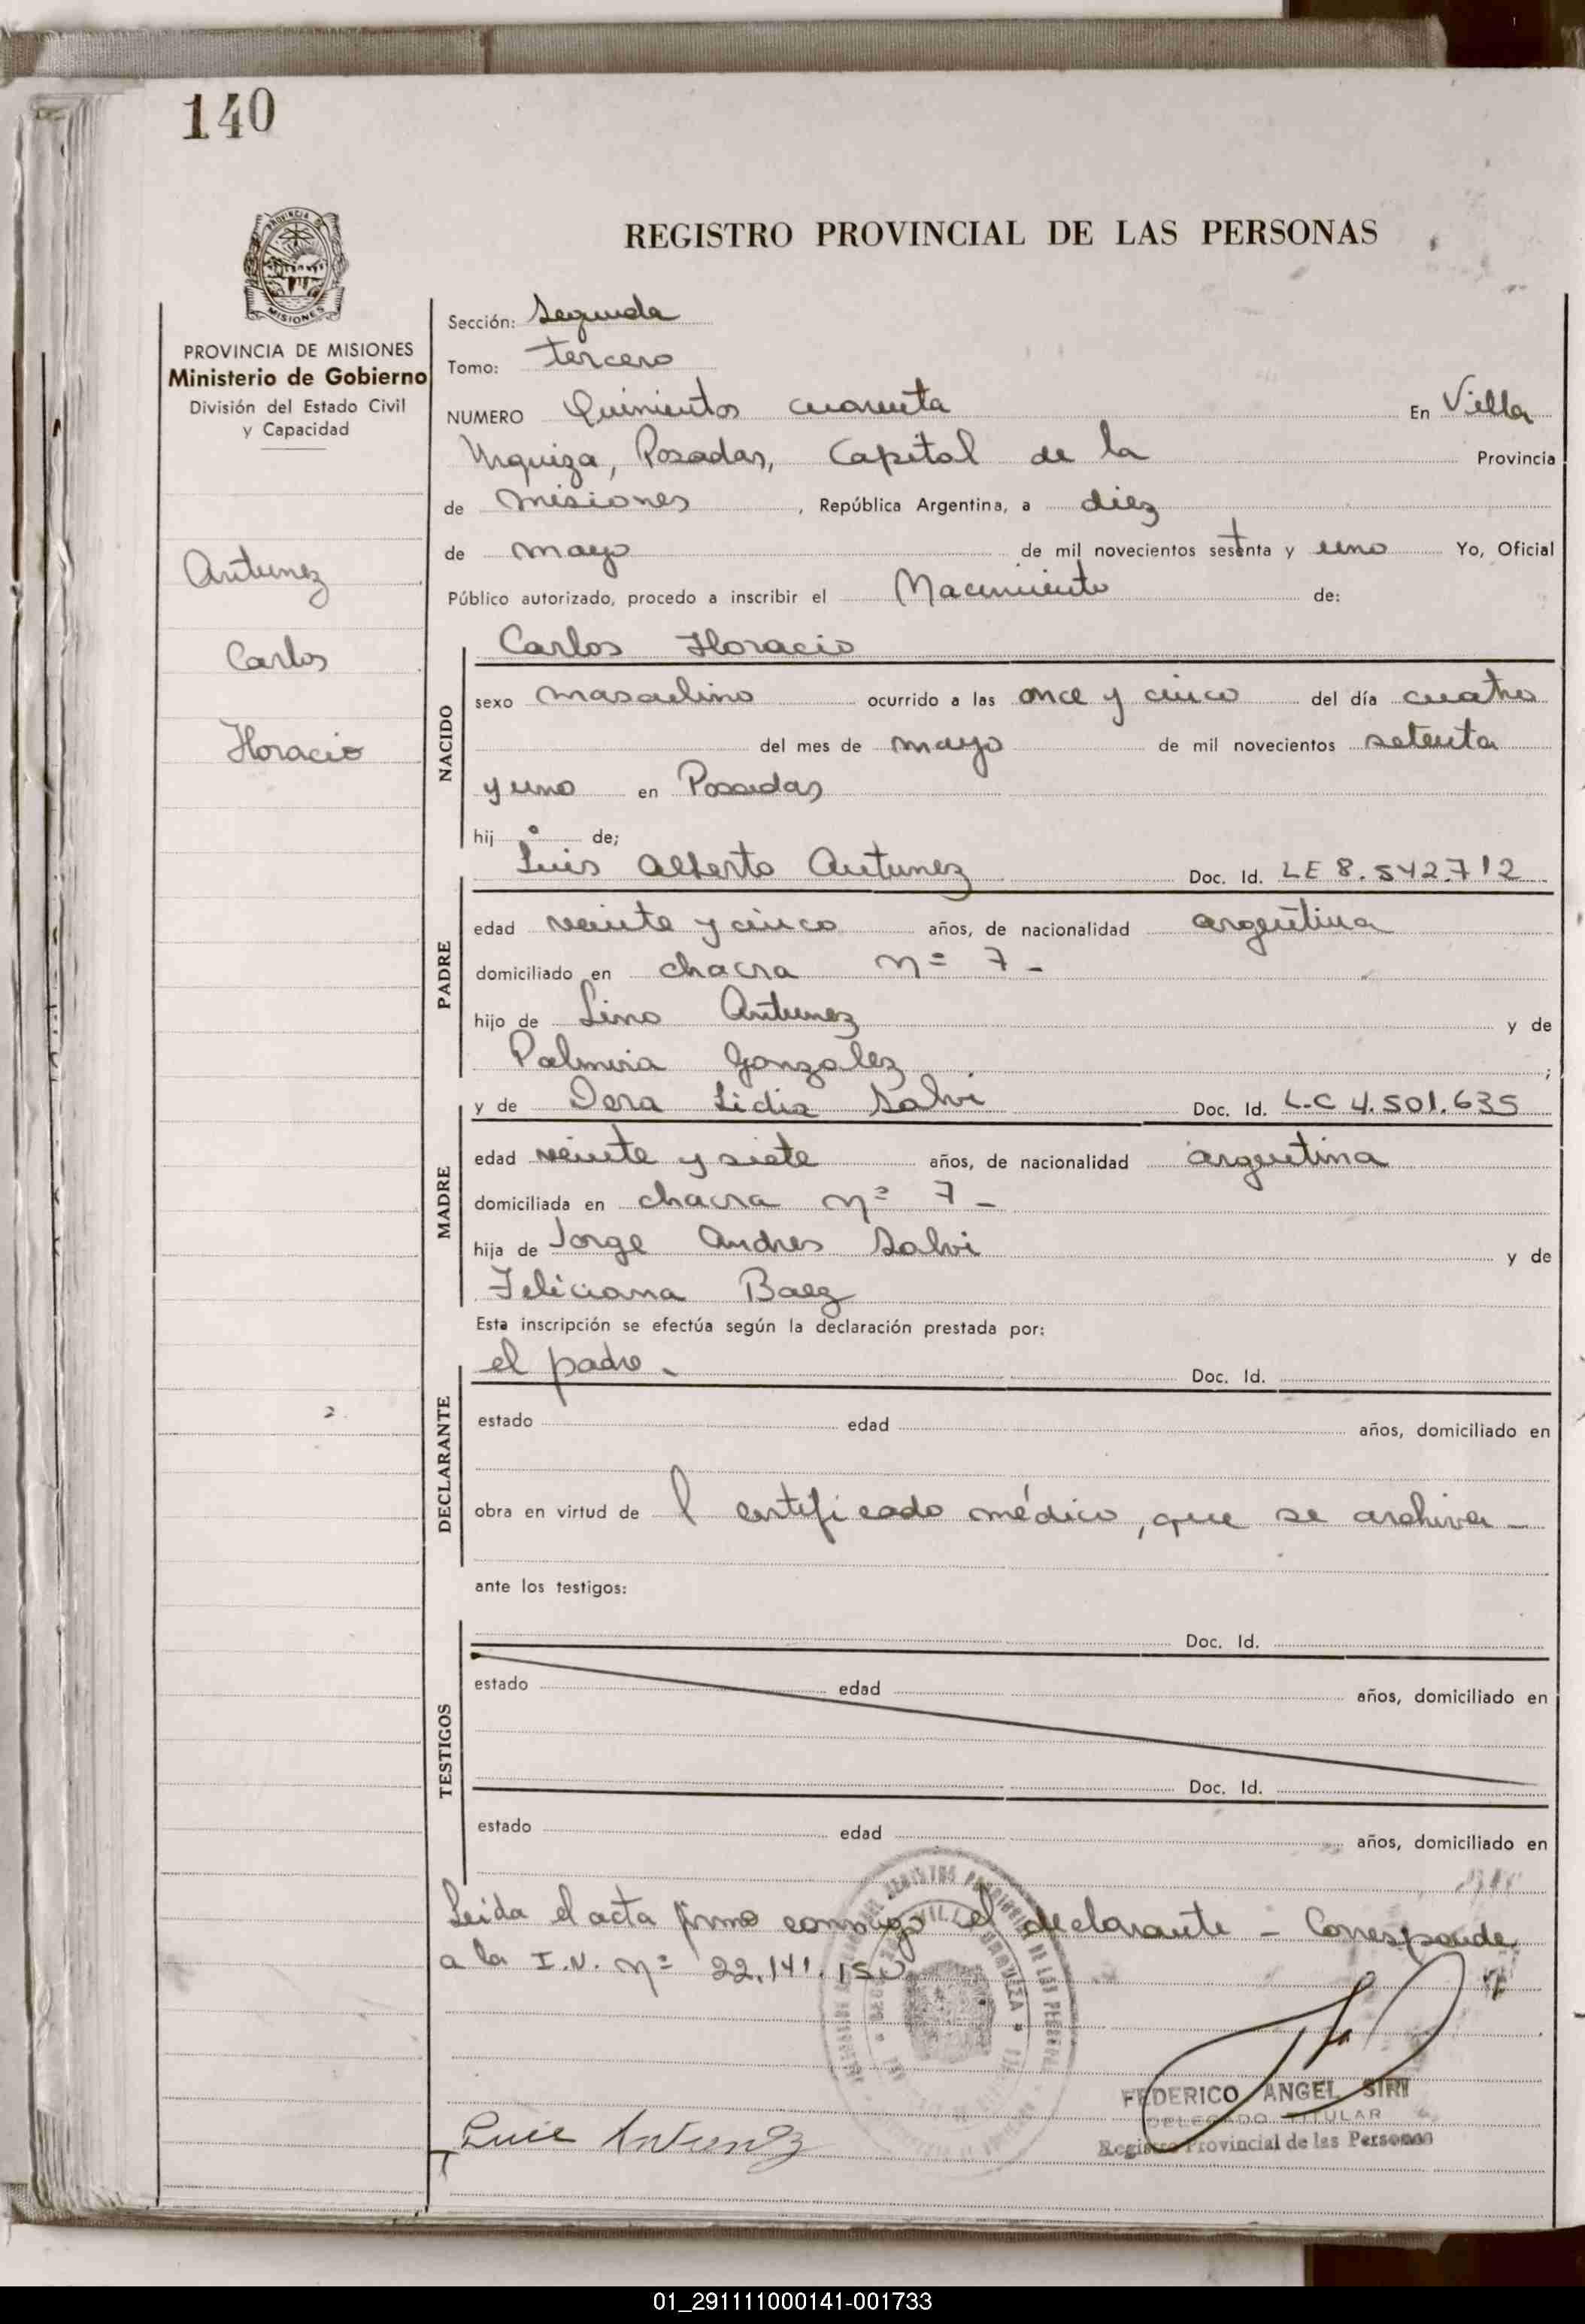 140
REGISTRO PROVINCIAL DE LAS PERSONAS
PROVINCIA DE MISIONES
MISIONES
PROVINCIA DE MISIONES
Ministerio de Gobierno
División del Estado Civil
y Capacidad
Antunez
Carlos
Horacio
Sección: Segunda
Tomo: tercero
NUMERO Quinientos cuarenta En Villa
Urquiza, Posadas, Capital de la Provincia
de Misiones, República Argentina, a diez
de mayo de mil novecientos setenta y uno Yo, Oficial
Público autorizado, procedo a inscribir el Nacimiento de:
NACIDO
Carlos Horacio
sexo masculino ocurrido a las once y cinco del día cuatro
del mes de mayo de mil novecientos setenta
y uno en Posadas
hijo de;
PADRE
Luis Alberto Antunez Doc. Id. LE 8.542.712
edad veinte y cinco años, de nacionalidad argentina
domiciliado en chacra nº 7 -
hijo de Lino Antunez y de
Palmira Gonzalez;
MADRE
y de Dora Lidia Salvi Doc. Id. L.C 4.501.635
edad veinte y siete años, de nacionalidad argentina
domiciliada en chacra nº 7 -
hija de Jorge Andres Salvi y de
Feliciana Baez
Esta inscripción se efectúa según la declaración prestada por:
DECLARANTE
el padre. Doc. Id.
estado edad años, domiciliado en
obra en virtud de l certificado médico, que se archiva -
ante los testigos:
TESTIGOS
Doc. Id.
estado edad años, domiciliado en
Doc. Id.
estado edad años, domiciliado en
Leida el acta firma conmigo el declarante - Corresponde
a la I.N. nº 22.141.
VILLA URQUIZA
Luis Antunez
FEDERICO ANGEL SIRI
DELEGADO TITULAR
Registro Provincial de las Personas
01_291111000141-001733